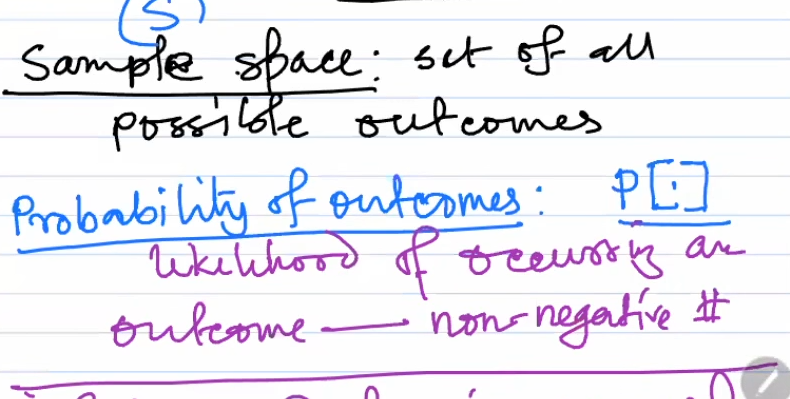 (S)
Sample space: set of all
possible outcomes
Probability of outcomes: P[.]
likelihood of occurring an
outcome — non-negative #